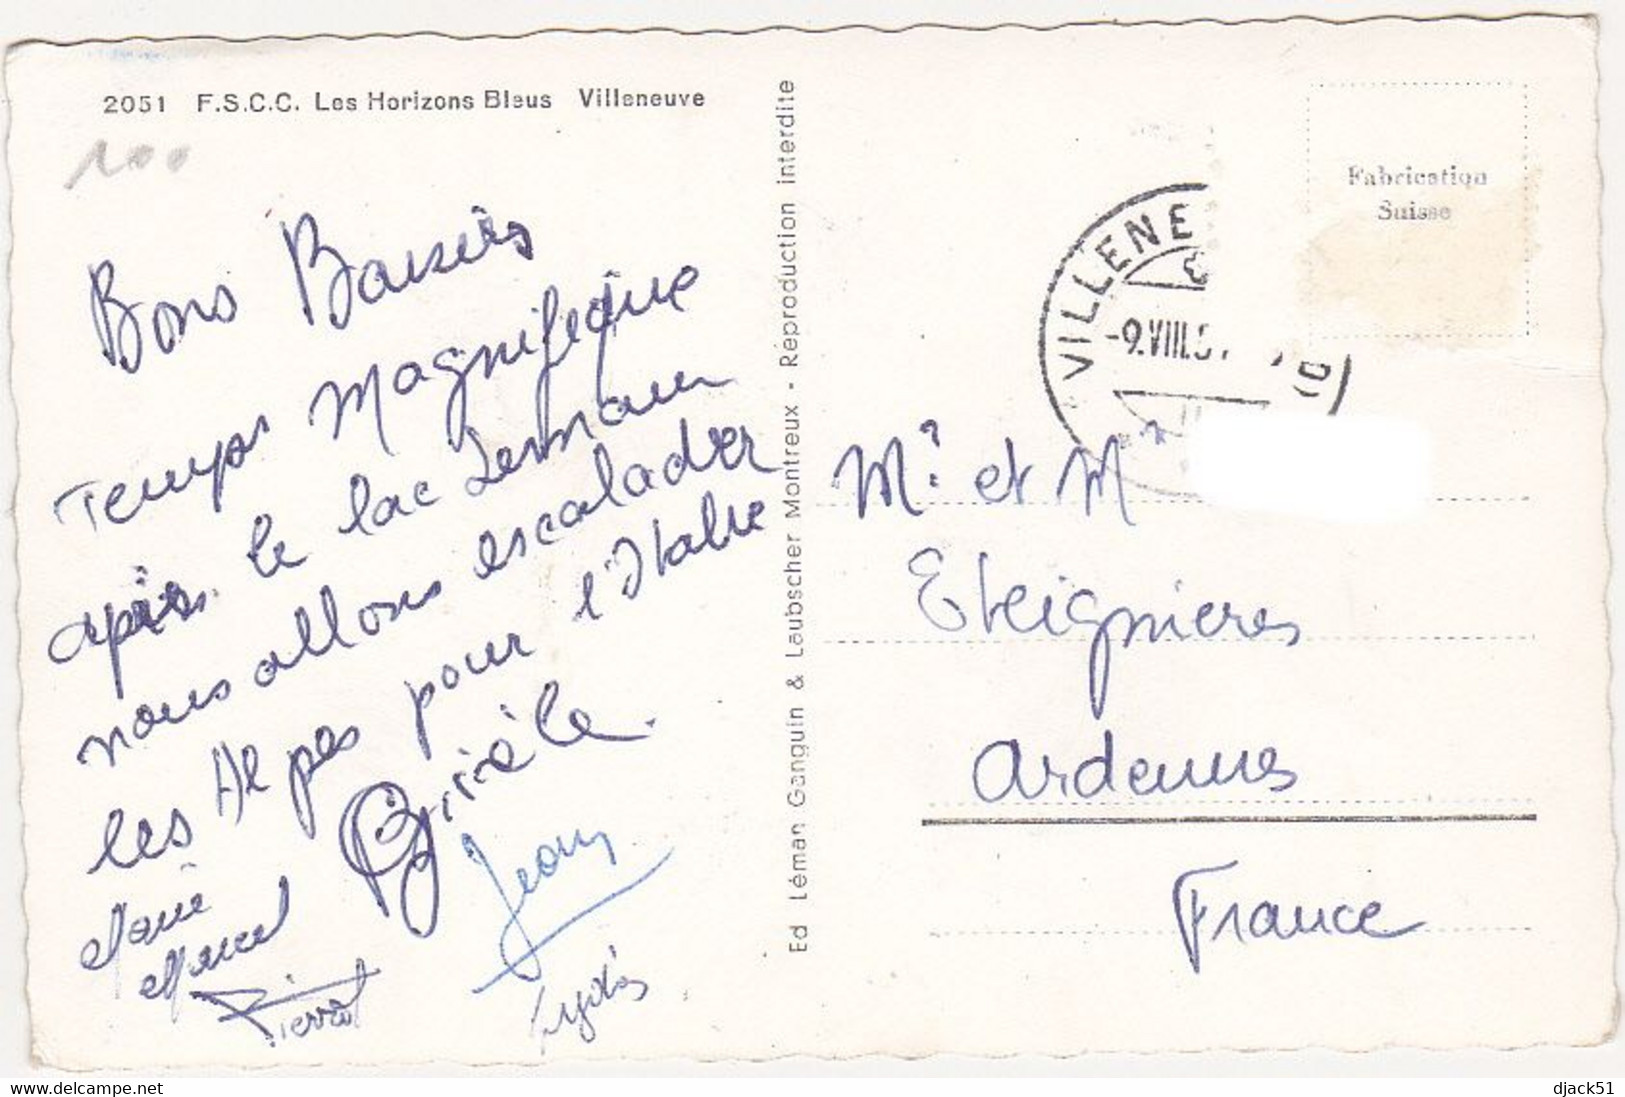 2051 F.S.C.C. Les Horizons Bleus Villeneuve
100
Bons Baisers
Temps Magnifique
après le lac Lemann
nous allons escalader
les Alpes pour l'Italie
Gisèle.
Marie
Marcel
Pierrot
Jean
Ed Léman Ganguin & Laubscher Montreux - Réproduction interdite
Fabrication
Suisse
VILLENE
-9.VIII.5
Mr et M
Eteignières
Ardennes
France
delcampe.net
djack51